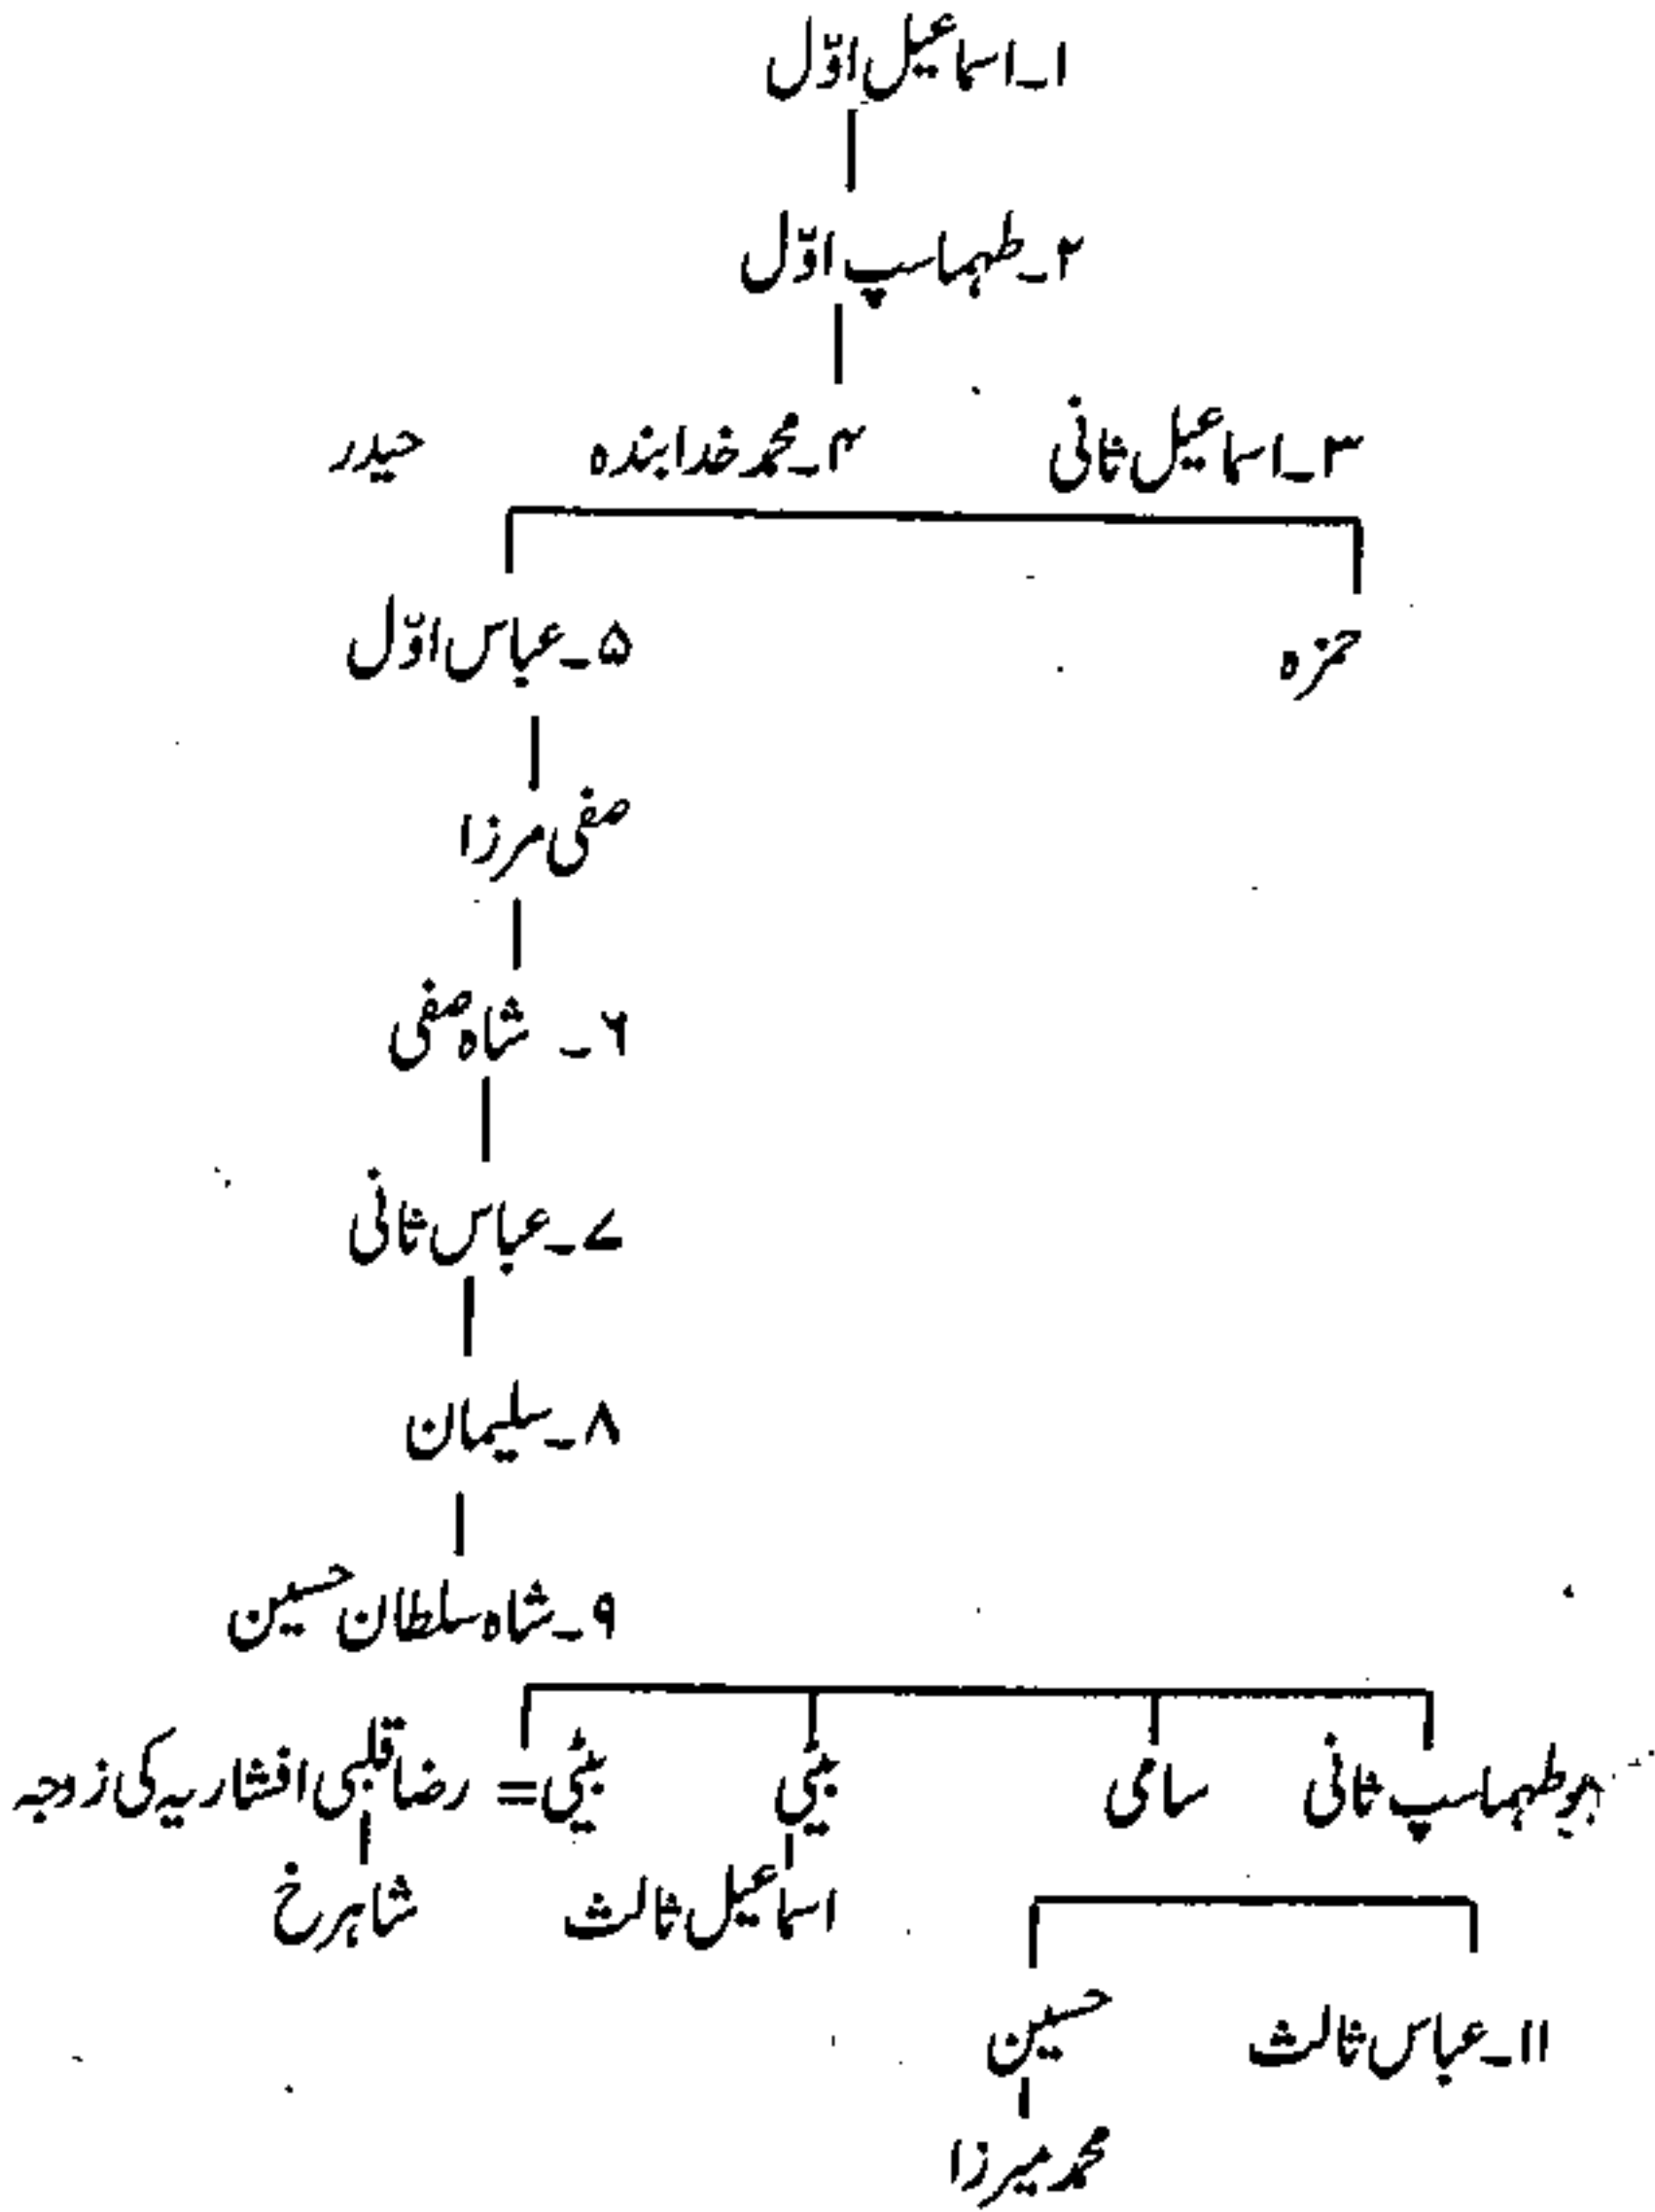 ۱۔اسماعیل اوّل
۲۔طہماسپ اوّل
۳۔اسماعیل ثانی ۴۔محمد خدا بندہ حیدر
حمزہ ۵۔عباس اوّل
صفی مرزا
۶۔ شاہ صفی
۷۔عباس ثانی
۸۔سلیمان
۹۔شاہ سلطان حسین
طہماسپ ثانی سامی بیٹی بیٹی = رضا قلبی افشاریہ کی زوجہ
اسماعیل ثالث شاہرخ
۱۱۔عباس ثالث حسین
محمد میرزا